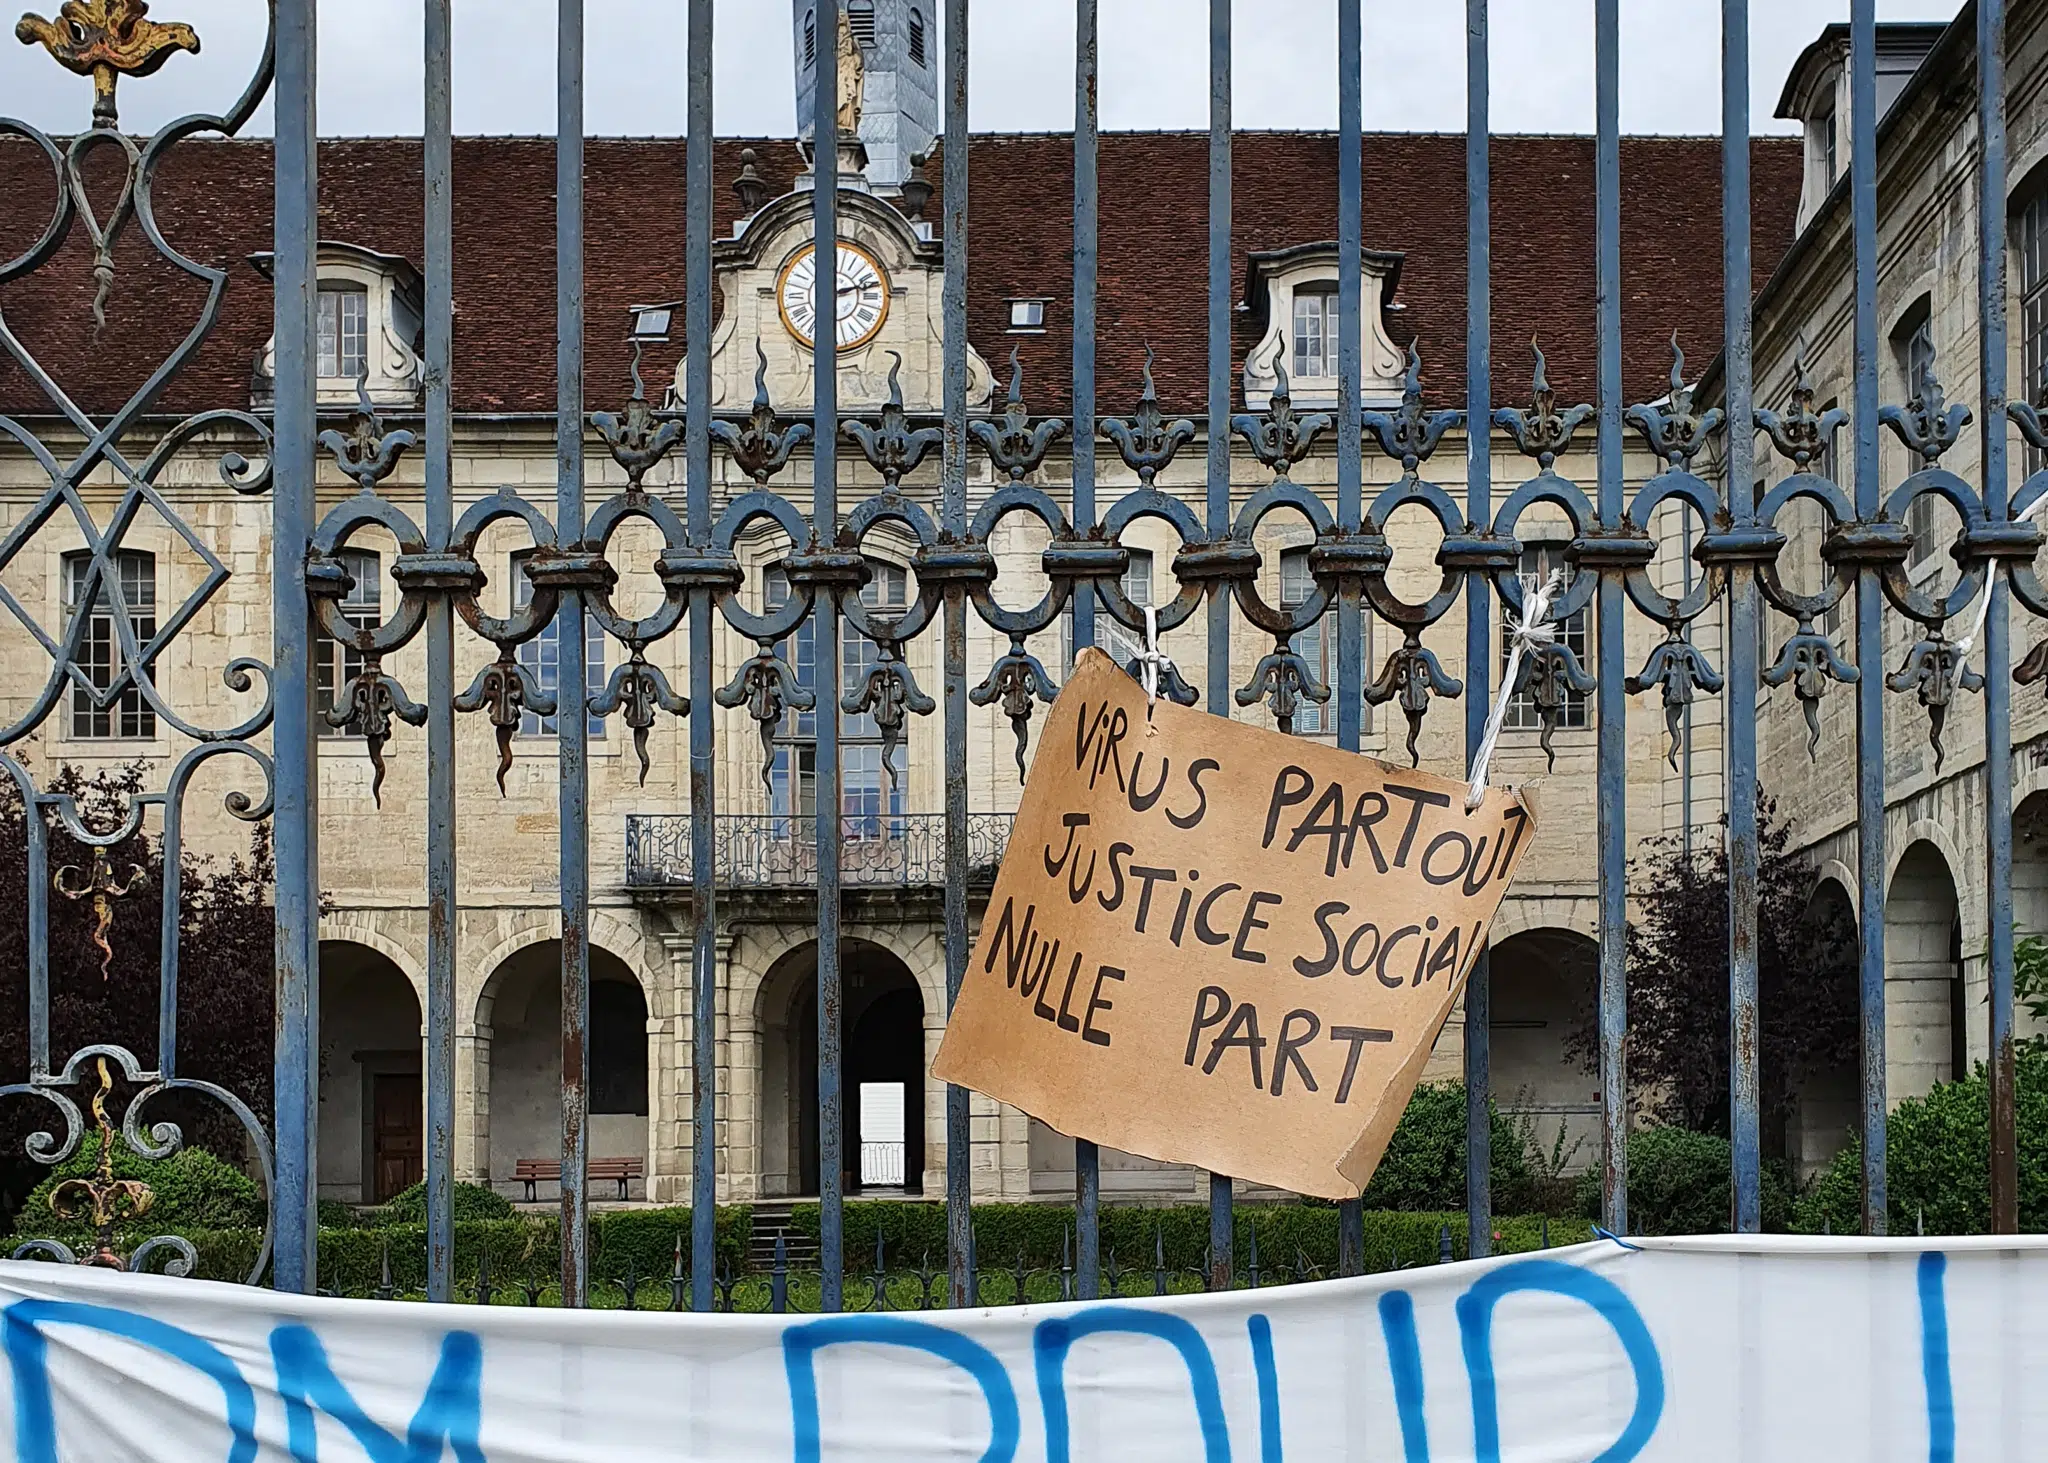 ViRUS PARTOUT
JUSTiCE SOCiAl
NULLE PART
POUR